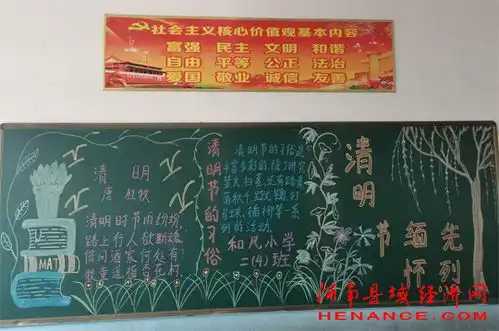 社会主义核心价值观基本内容
富强 民主 文明 和谐
自由 平等 公正 法治
爱国 敬业 诚信 友善
清明
唐 杜牧
清明时节雨纷纷
路上行人欲断魂
借问酒家何处有
牧童遥指杏花村
MAT
清明节的习俗
清明节的习俗是
丰富多彩的,除了讲究
禁火扫墓,还有踏青
荡秋千
球、插柳等一系
列的活动。
和凡小学
二(4)班
清明节
缅怀
先烈
河南县域经济网
HENANCE.COM